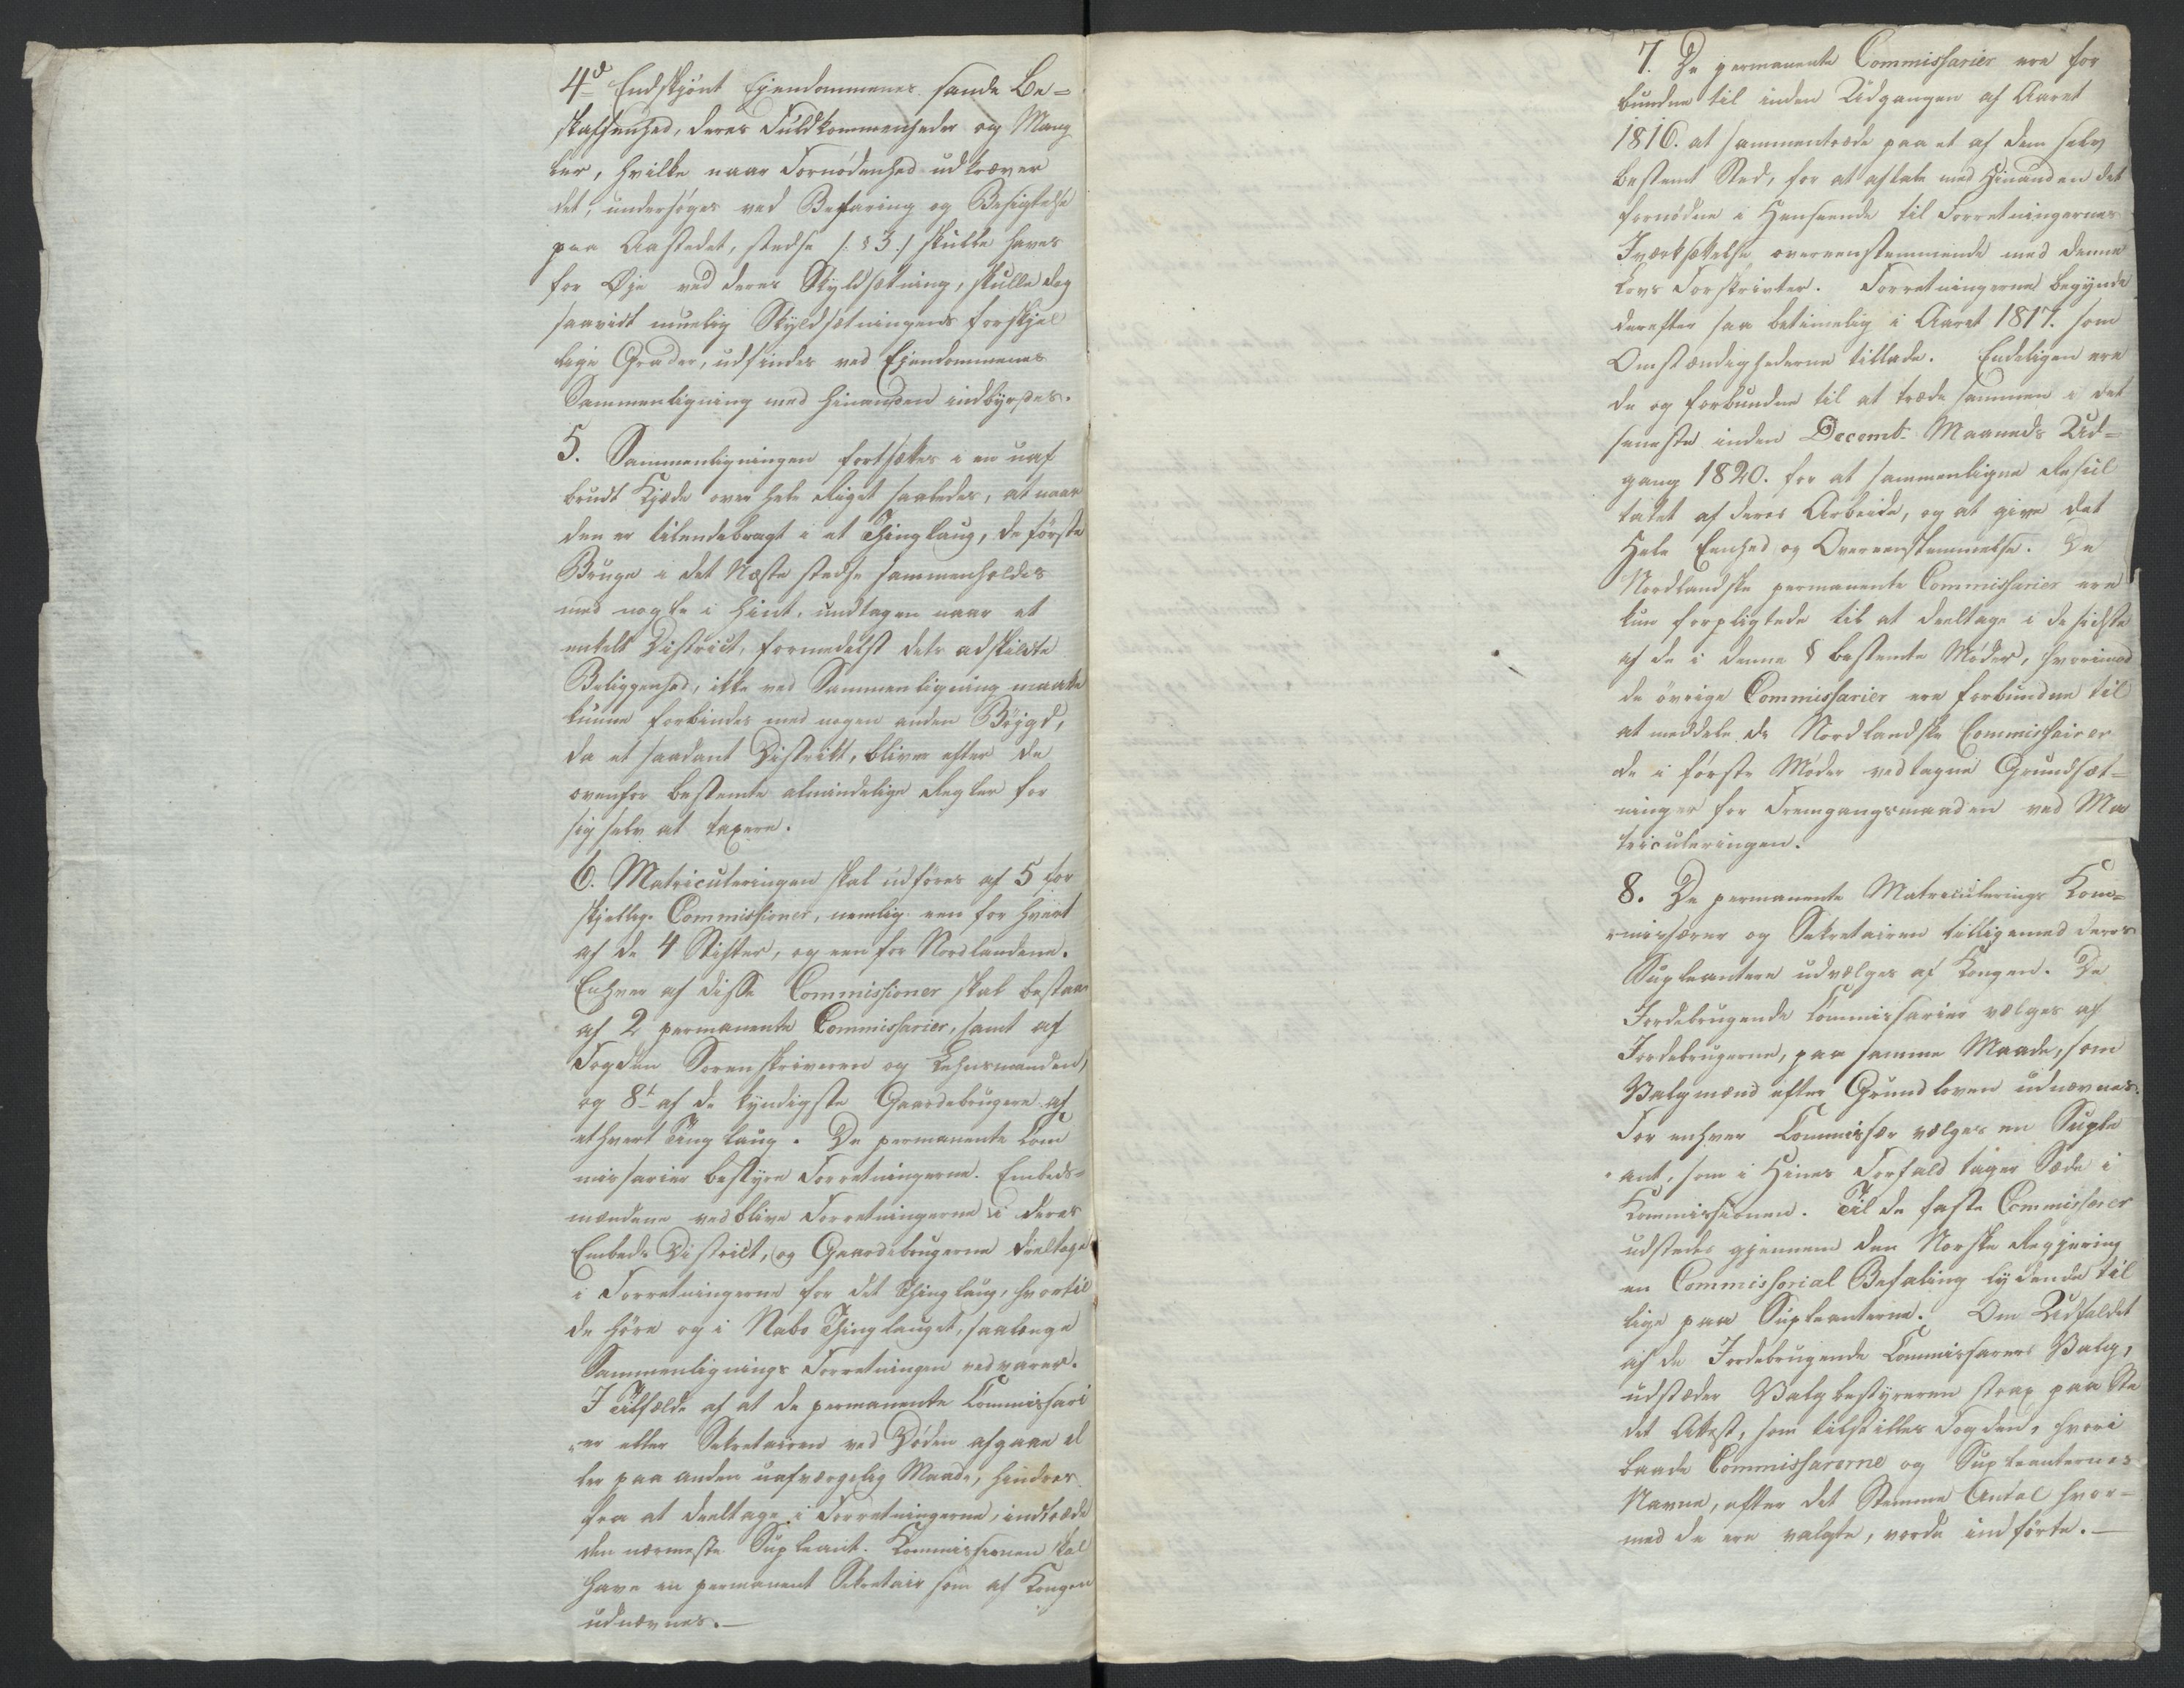 4d Endskjönt Ejendommenes sande Be=
skaffenhed, deres Fuldkommenheder og Mang
ler, hvilke naar Fornødenhed udkræver
det, undersöges ved Befaring og Besigtelse
paa Aastedet, stedse /: § 3 :/ skulle haves
for Øje ved deres Skyldsætning, skulle dog
saavidt muelig Skyldsætningens forskjel
lige Grader, udfindes ved Ejendommenes
Sammenligning med hinanden indbyrdes.
5. Sammenligningen fortsættes i en uaf
brudt Kjæde over hele Riget saaledes, at naar
den er tilendebragt i et Thinglaug, de förste
Bruge i det Næste stedse sammenholdes
med nogle i hint, undtagen naar et
enkelt District, formedelst dets adskildte
Beliggenhed, ikke ved Sammenligning maatte
kunne forbindes med nogen anden Bÿgd,
da et saadant Distrikt, bliver efter de
ovenfor bestemte almindelige Regler for
sig selv at taxere.
6. Matriculeringen skal udföres af 5 for
skjellige Commissioner, nemlig een for hvert
af de 4 Stifter, og een for Nordlandene.
Enhver af disse Commissioner skal bestaae
af 2 permanente Commissarier, samt af
Fogden Sorenskriveren og Lehnsmanden,
og 8t af de kyndigste Gaardebrugere af
ethvert Tinglaug. De permanente Com
missarier bestyre Forretningerne. Embeds=
mændene vedblive Forretningerne i deres
Embeds District, og Gaardebrugerne deeltage
i Forretningerne for det Thinglaug, hvortil
de höre og i Nabo Thinglauget, saalænge
Sammenlignings Forretningen vedvarer.
I Tilfælde af at de permanente Commissari
er eller Sekretairen ved Döden afgaae el
ler paa anden uafværgelig Maade, hindres
fra at deeltage i Forretningerne, indtræde
den nærmeste Supleant. Kommissionen skal
have en permanent Sekretair som af Kongen
udnævnes.—
7. De permanente Commissarier ere for
bundne til inden Udgangen af Aaret
1816. at sammentræde paa et af dem selv
bestemt Sted, for at aftale med Hinanden det
fornødne i Henseende til Forretningernes
Iværksættelse overeenstemmende med denne
Lovs Forskrivter. Forretningerne begynde
derefter saa betimelig i Aaret 1817. som
Omstændighederne tillade. Endeligen ere
de og forbundne til at træde sammen i det
seneste inden Decembr Maaneds Ud=
gang 1820. for at sammenligne Resul
tatet af deres Arbeide, og at give det
Hele Eenhed og Overeenstemmelse. De
Nordlandske permanente Commissarier ere
kun forpligtede til at deeltage i de sidste
af de i denne § bestemte Møder, hvorimod
de övrige Commissarier ere forbundne til
at meddele de Nordlandske Commissairer
de i förste Møder vedtagne Grundsæt=
ninger for Fremgangsmaaden ved Ma
triculeringen.
8. De permanente Matriculerings Kom=
missærer og Sekretairen tilligemed deres
Supleantere udvælges af Kongen. De
Jordebrugende Commissarier vælges af
Jordebrugerne, paa samme Maade, som
Valgmænd efter Grundloven udnævnes.
For enhver Commissær vælges en Suple
ant, som i Hines Forfald tager Sæde i
Kommissionen. Til de faste Commissærer
udstedes gjennem den Norske Regjering
en Commissorial Befaling lydende til
lige paa Supleanterne. Om Udfaldet
af de Jordebrugende Commissarers Valg,
udstæder Valgbestyreren strax paa Ste
det Attest, som tilstilles Fogden, hvori
baade Commissarerne og Supleanternes
Navne, efter det Stemme Antal hvor=
med de ere valgte, vorde indførte.—